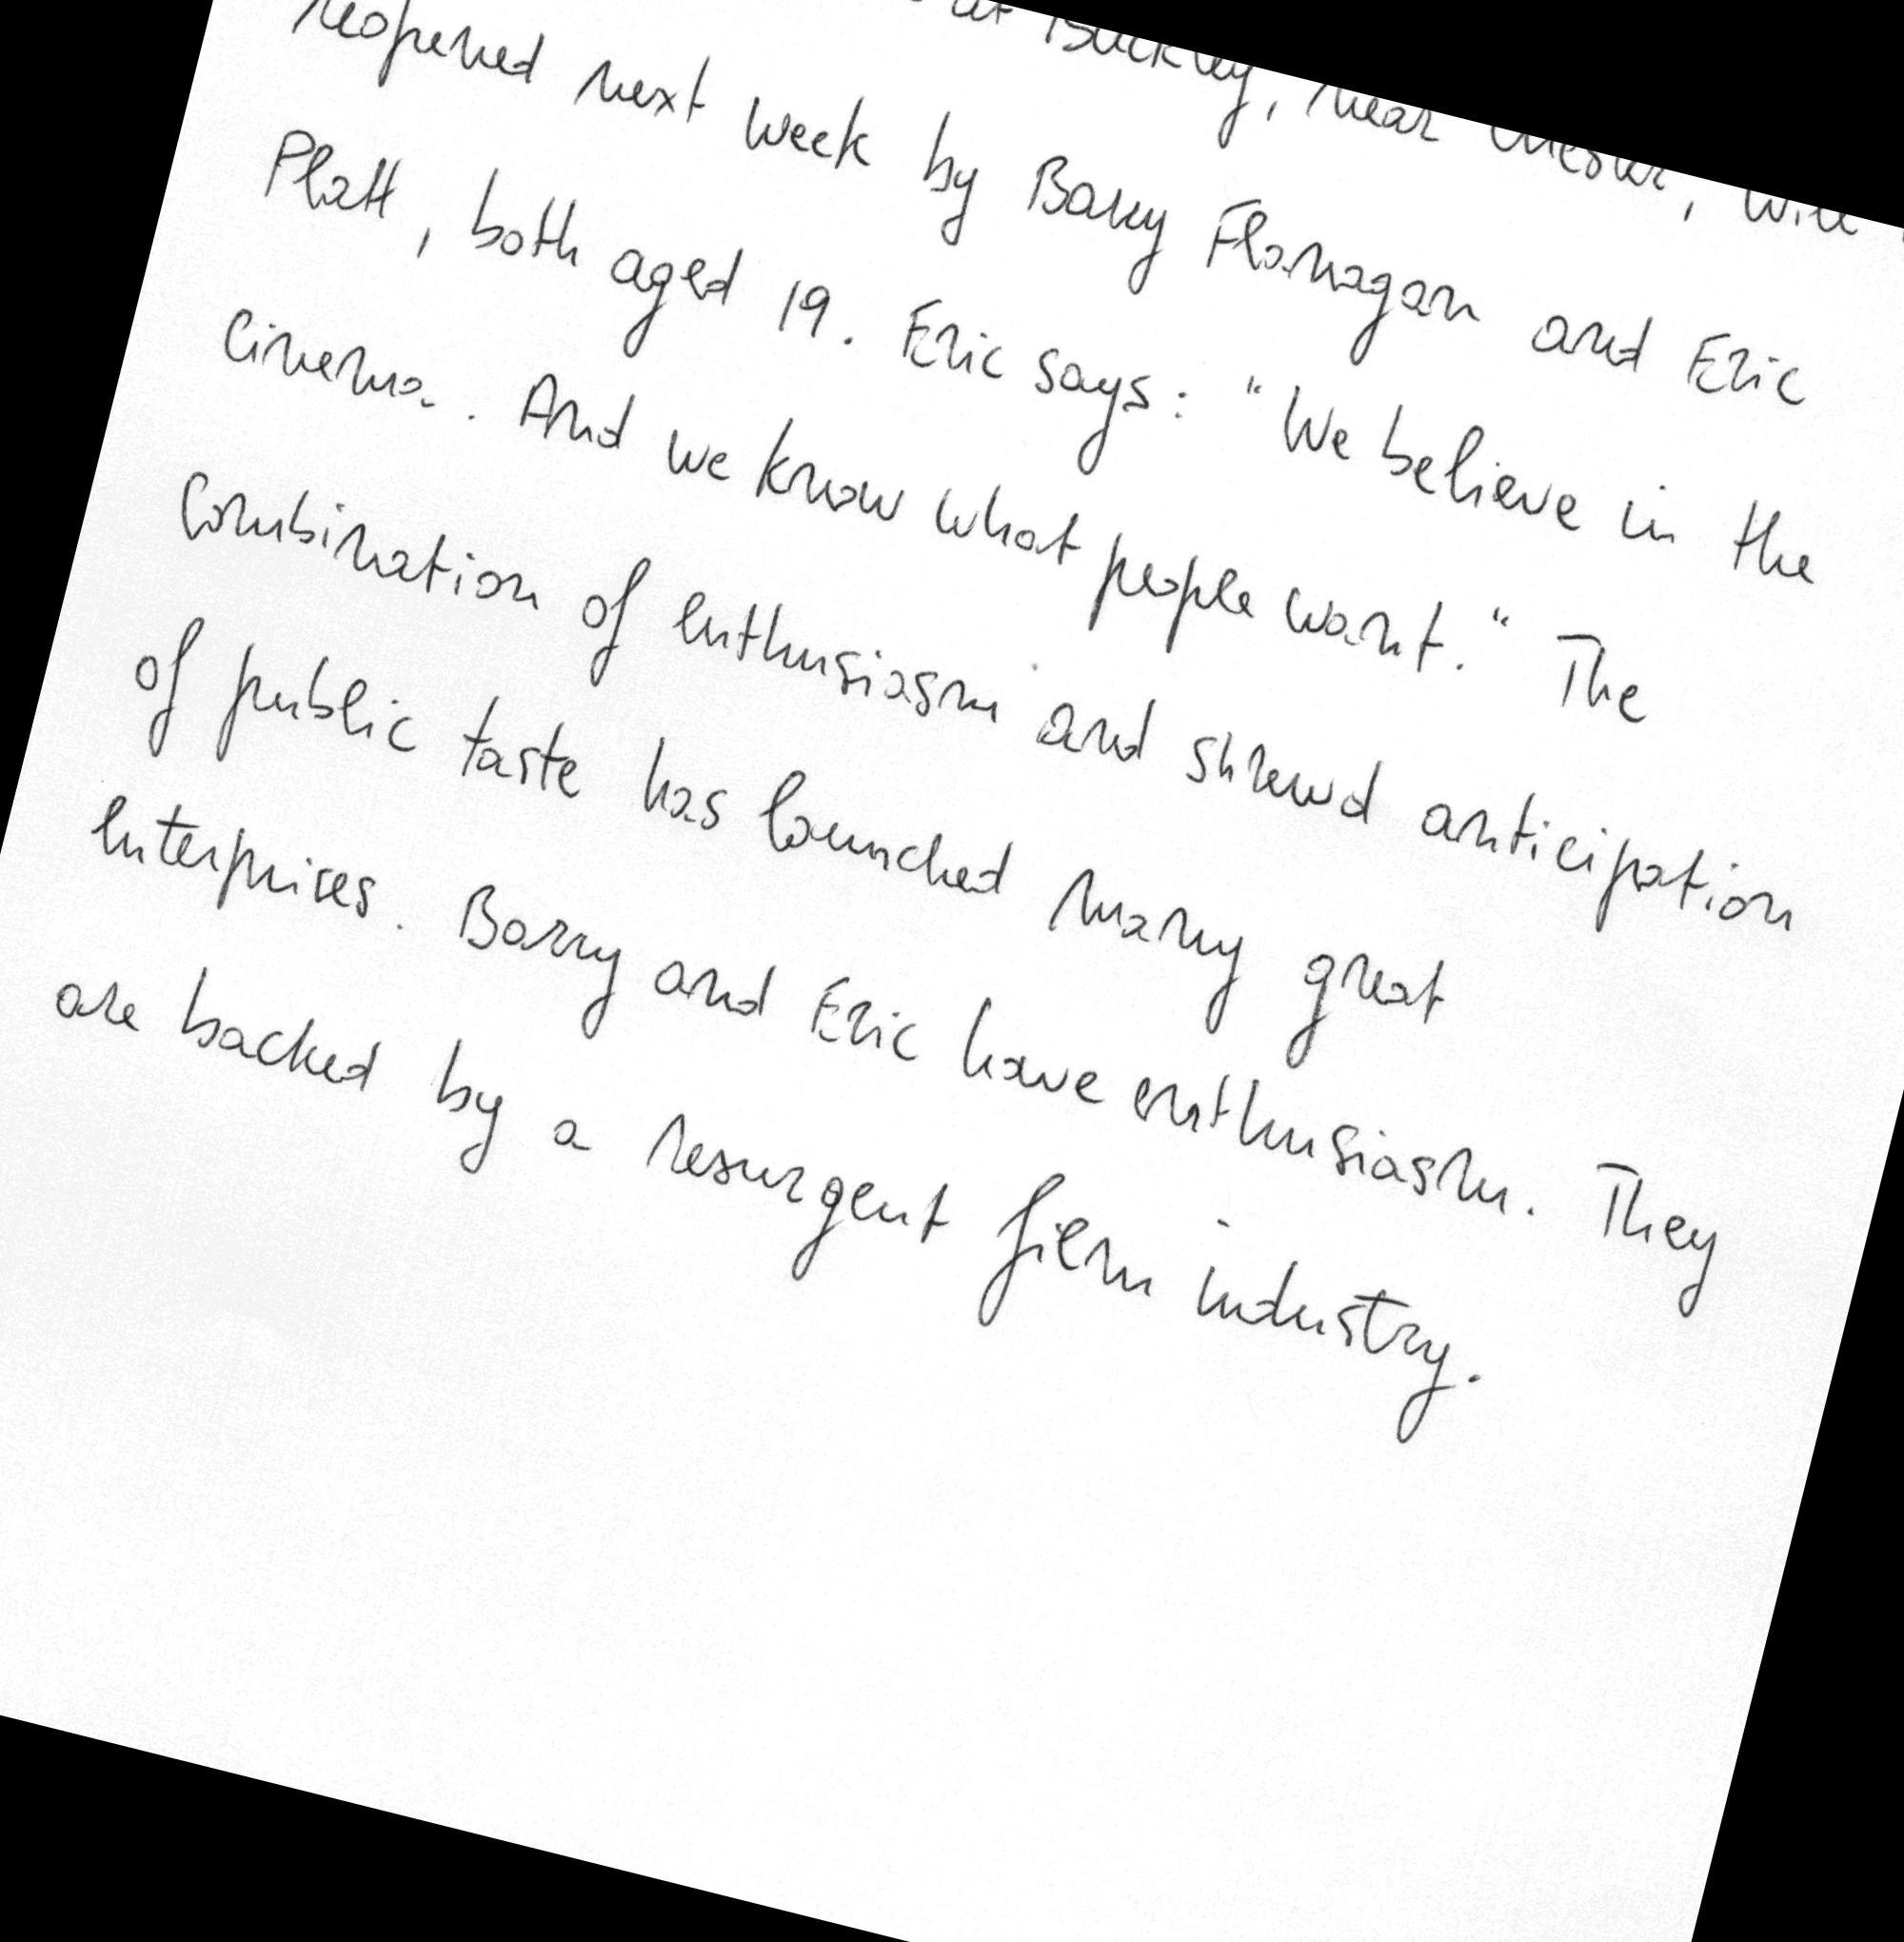 at Buckley, near Chester, will
reopened next week by Barry Flanagan and Eric
Platt, both aged 19. Eric says: "We believe in the
cinema. And we know what people want." The
combination of enthusiasm and shrewd anticipation
of public taste has launched many great
enterprises. Barry and Eric have enthusiasm. They
are backed by a resurgent film industry.